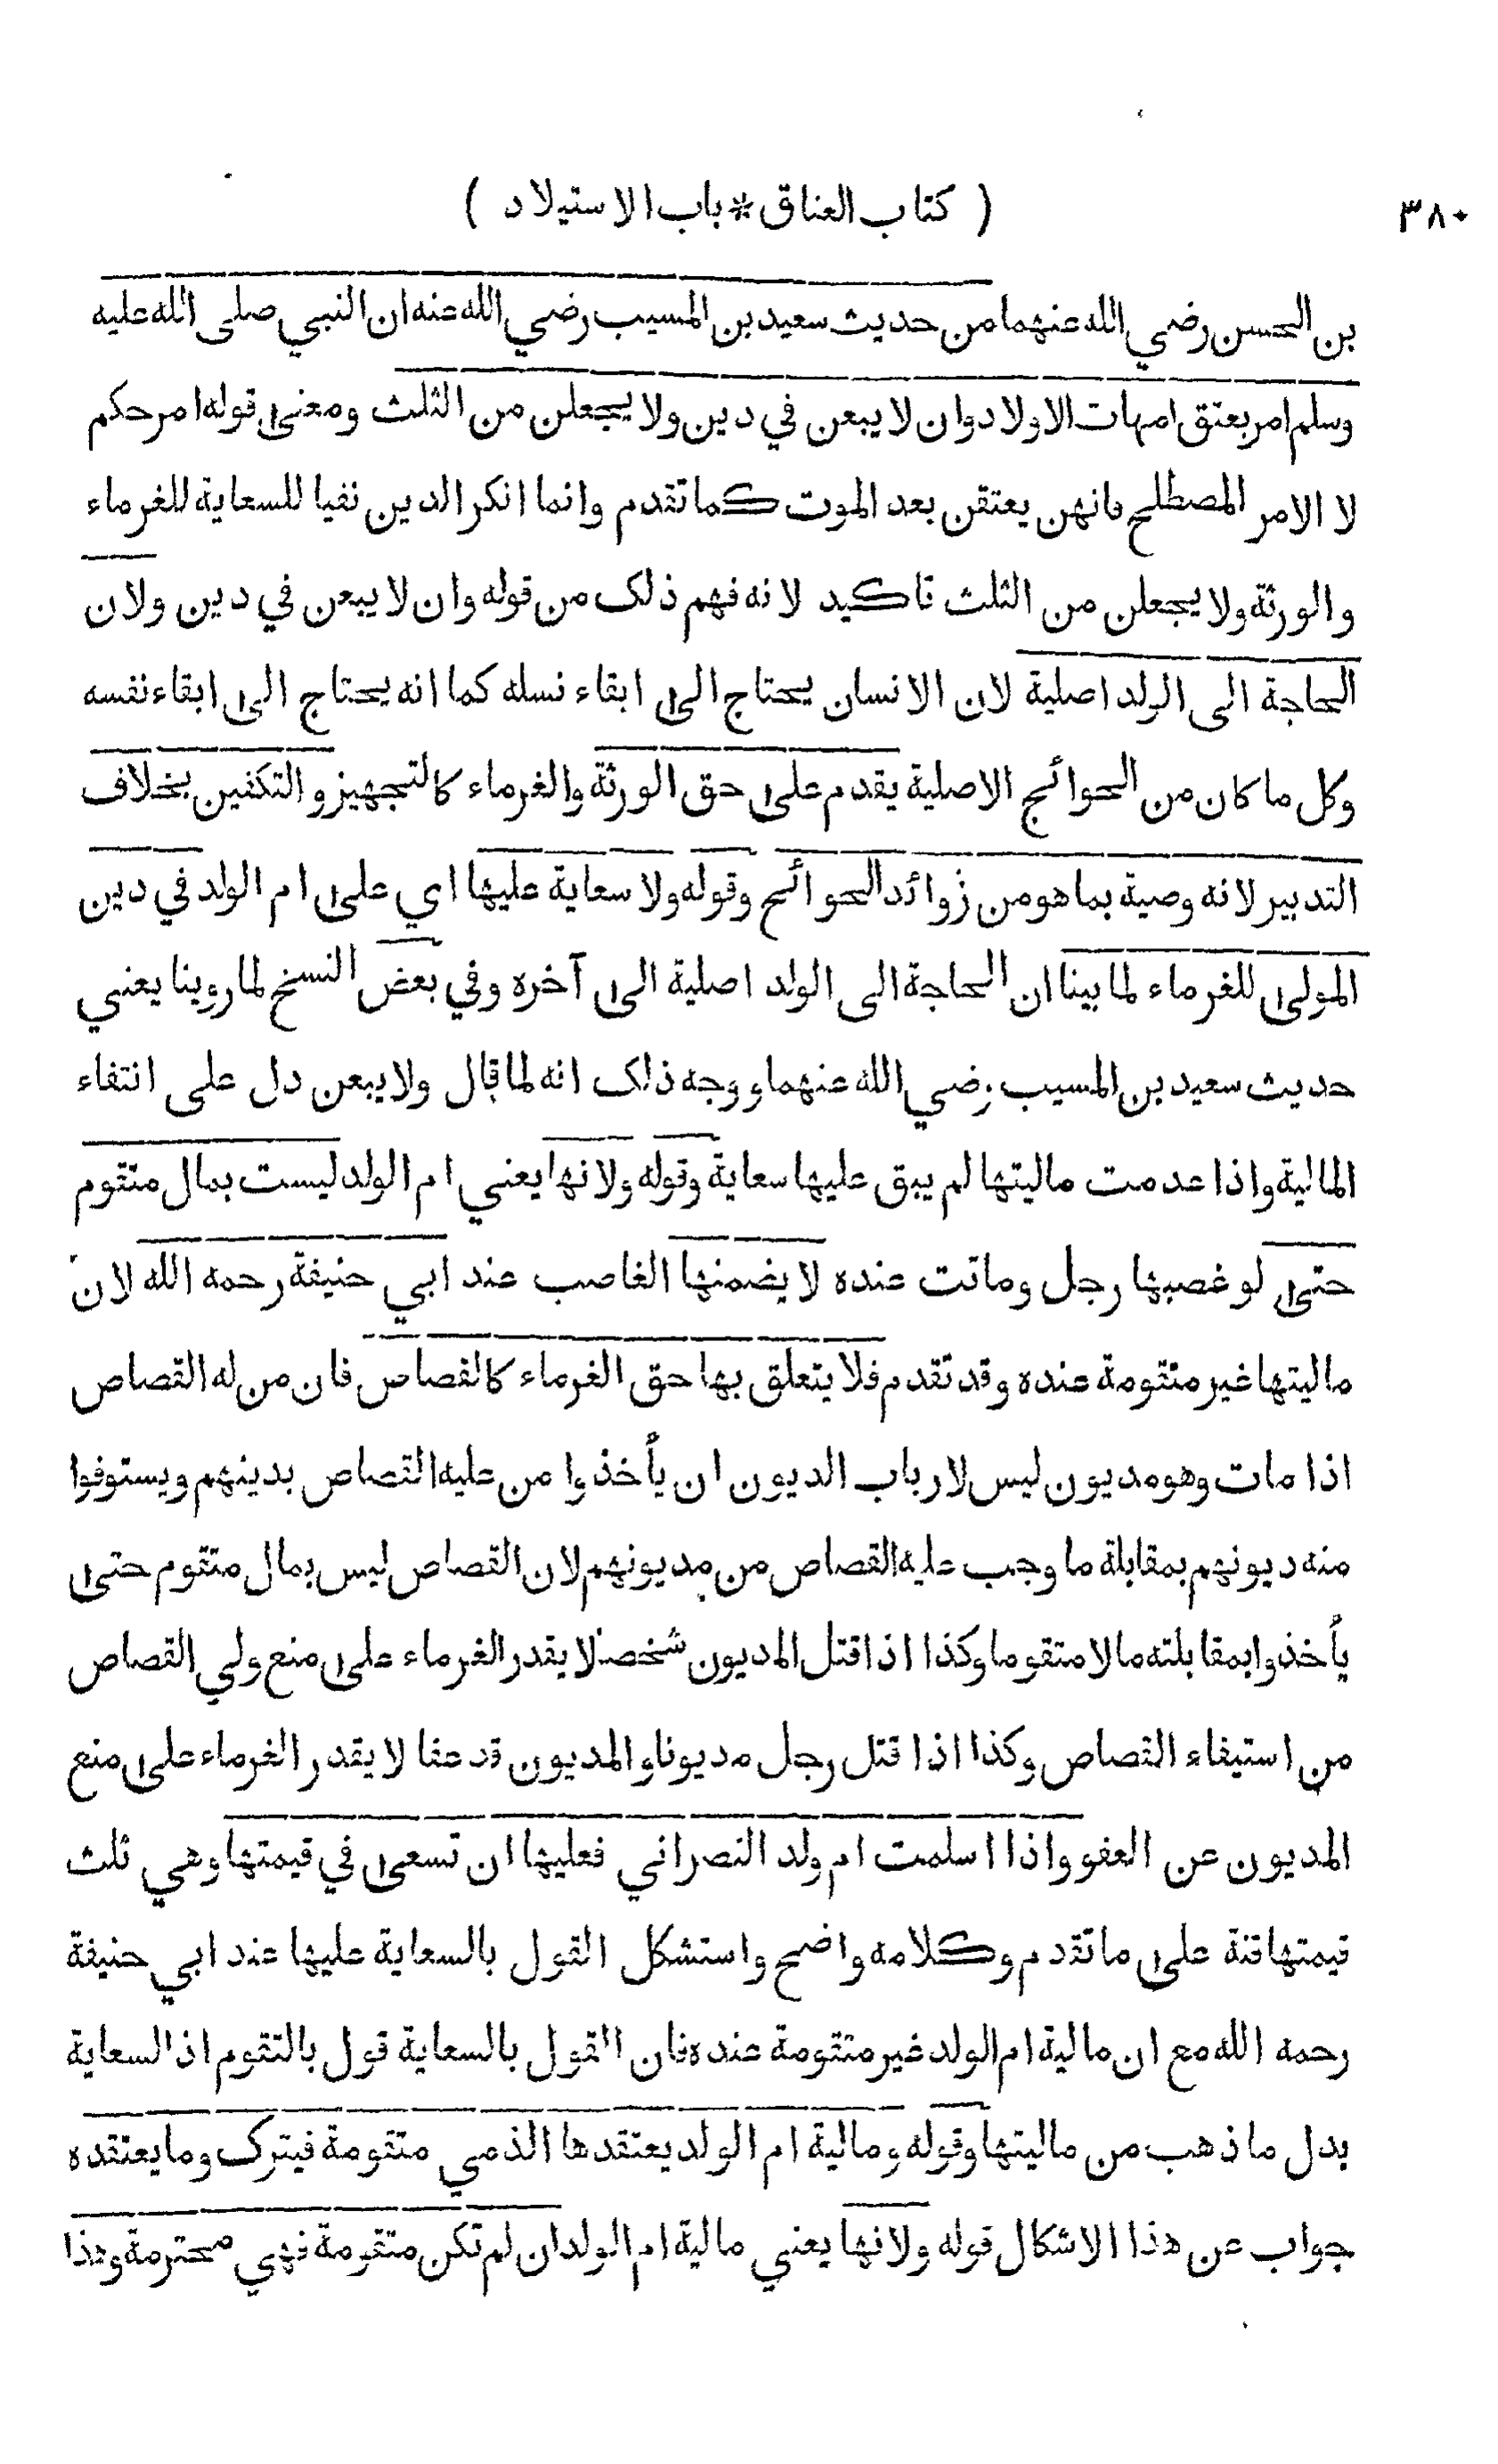 ٣٨٠
( كتاب العتاق * باب الاستيلاد )
بن الحسن رضي الله عنهما من حديث سعيد بن المسيب رضي الله عنه ان النبي صلى الله عليه
وسلم امر بعتق امهات الاولاد وان لا يبعن في دين ولا يجعلن من الثلث ومعنى قوله امر حكم
لا الامر المصطلح فانهن يعتقن بعد الموت كما تقدم وانما انكر الدين نفيا للسعاية للغرماء
والورثة ولا يجعلن من الثلث تاكيد لانه فهم ذلك من قوله وان لا يبعن في دين ولان
الحاجة الى الولد اصلية لان الانسان يحتاج الى ابقاء نسله كما انه يحتاج الى ابقاء نفسه
وكل ما كان من الحوائج الاصلية يقدم على حق الورثة والغرماء كالتجهيز والتكفين بخلاف
التدبير لانه وصية بما هو من زوائد الحوائج وقوله ولا سعاية عليها اي على ام الولد في دين
المولى للغرماء لما بينا ان الحاجة الى الولد اصلية الى آخره وفي بعض النسخ لما روينا يعني
حديث سعيد بن المسيب رضي الله عنهما و وجه ذلك انه لما قال ولا يبعن دل على انتفاء
المالية واذا عدمت ماليتها لم يبق عليها سعاية وقوله ولانها يعني ام الولد ليست بمال متقوم
حتى لو غصبها رجل وماتت عنده لا يضمنها الغاصب عند ابي حنيفة رحمه الله لان
ماليتها غير متقومة عنده وقد تقدم فلا يتعلق بها حق الغرماء كالقصاص فان من له القصاص
اذا مات وهو مديون ليس لارباب الديون ان يأخذوا من عليه القصاص بدينهم ويستوفوا
منه ديونهم بمقابلة ما وجب عليه القصاص من مديونهم لان القصاص ليس بمال متقوم حتى
يأخذوا بمقابلته مالا متقوما وكذا اذا قتل المديون شخصا لا يقدر الغرماء على منع ولي القصاص
من استيفاء القصاص وكذا اذا قتل رجل مديونا والمديون قد عفا لا يقدر الغرماء على منع
المديون عن العفو واذا اسلمت ام ولد النصراني فعليها ان تسعى في قيمتها وهي ثلث
قيمتها قنة على ما تقدم وكلامه واضح واستشكل القول بالسعاية عليها عند ابي حنيفة
رحمه الله مع ان مالية ام الولد غير متقومة عنده فان القول بالسعاية قول بالتقوم اذ السعاية
بدل ما ذهب من ماليتها وقوله ومالية ام الولد يعتقدها الذمي متقومة فيترك وما يعتقده
جواب عن هذا الاشكال قوله ولانها يعني مالية ام الولد ان لم تكن متقومة فهي محترمة وهذا